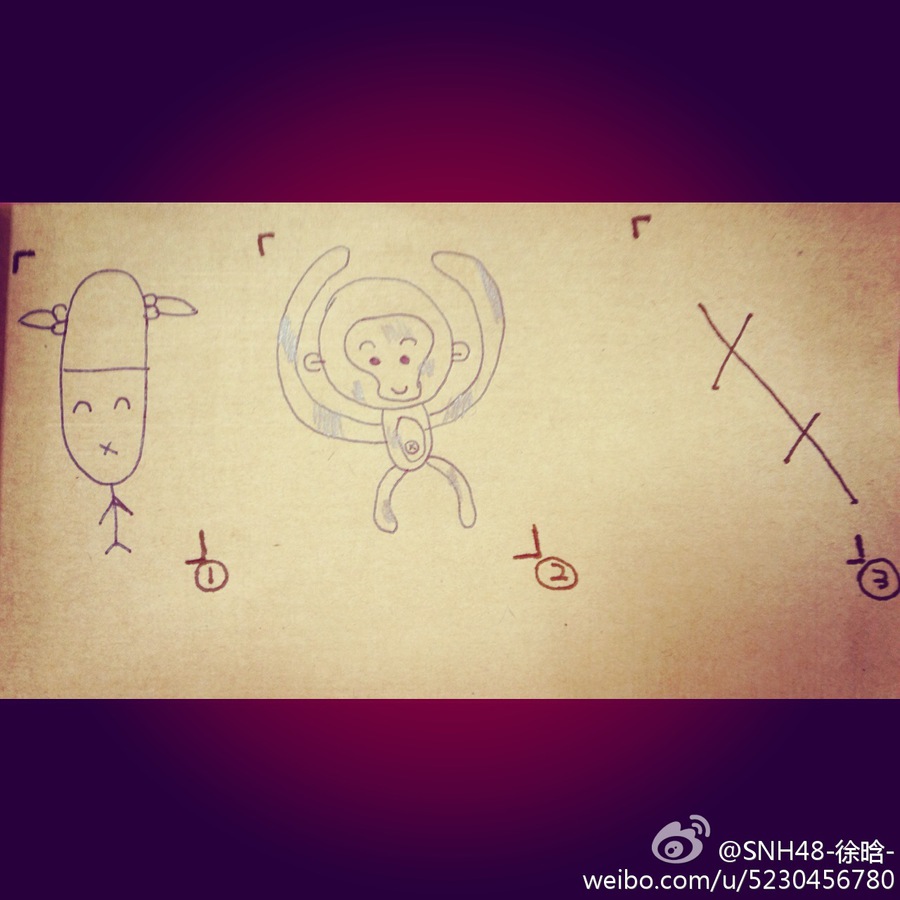 ①
②
③
@SNH48-徐晗-
weibo.com/u/5230456780